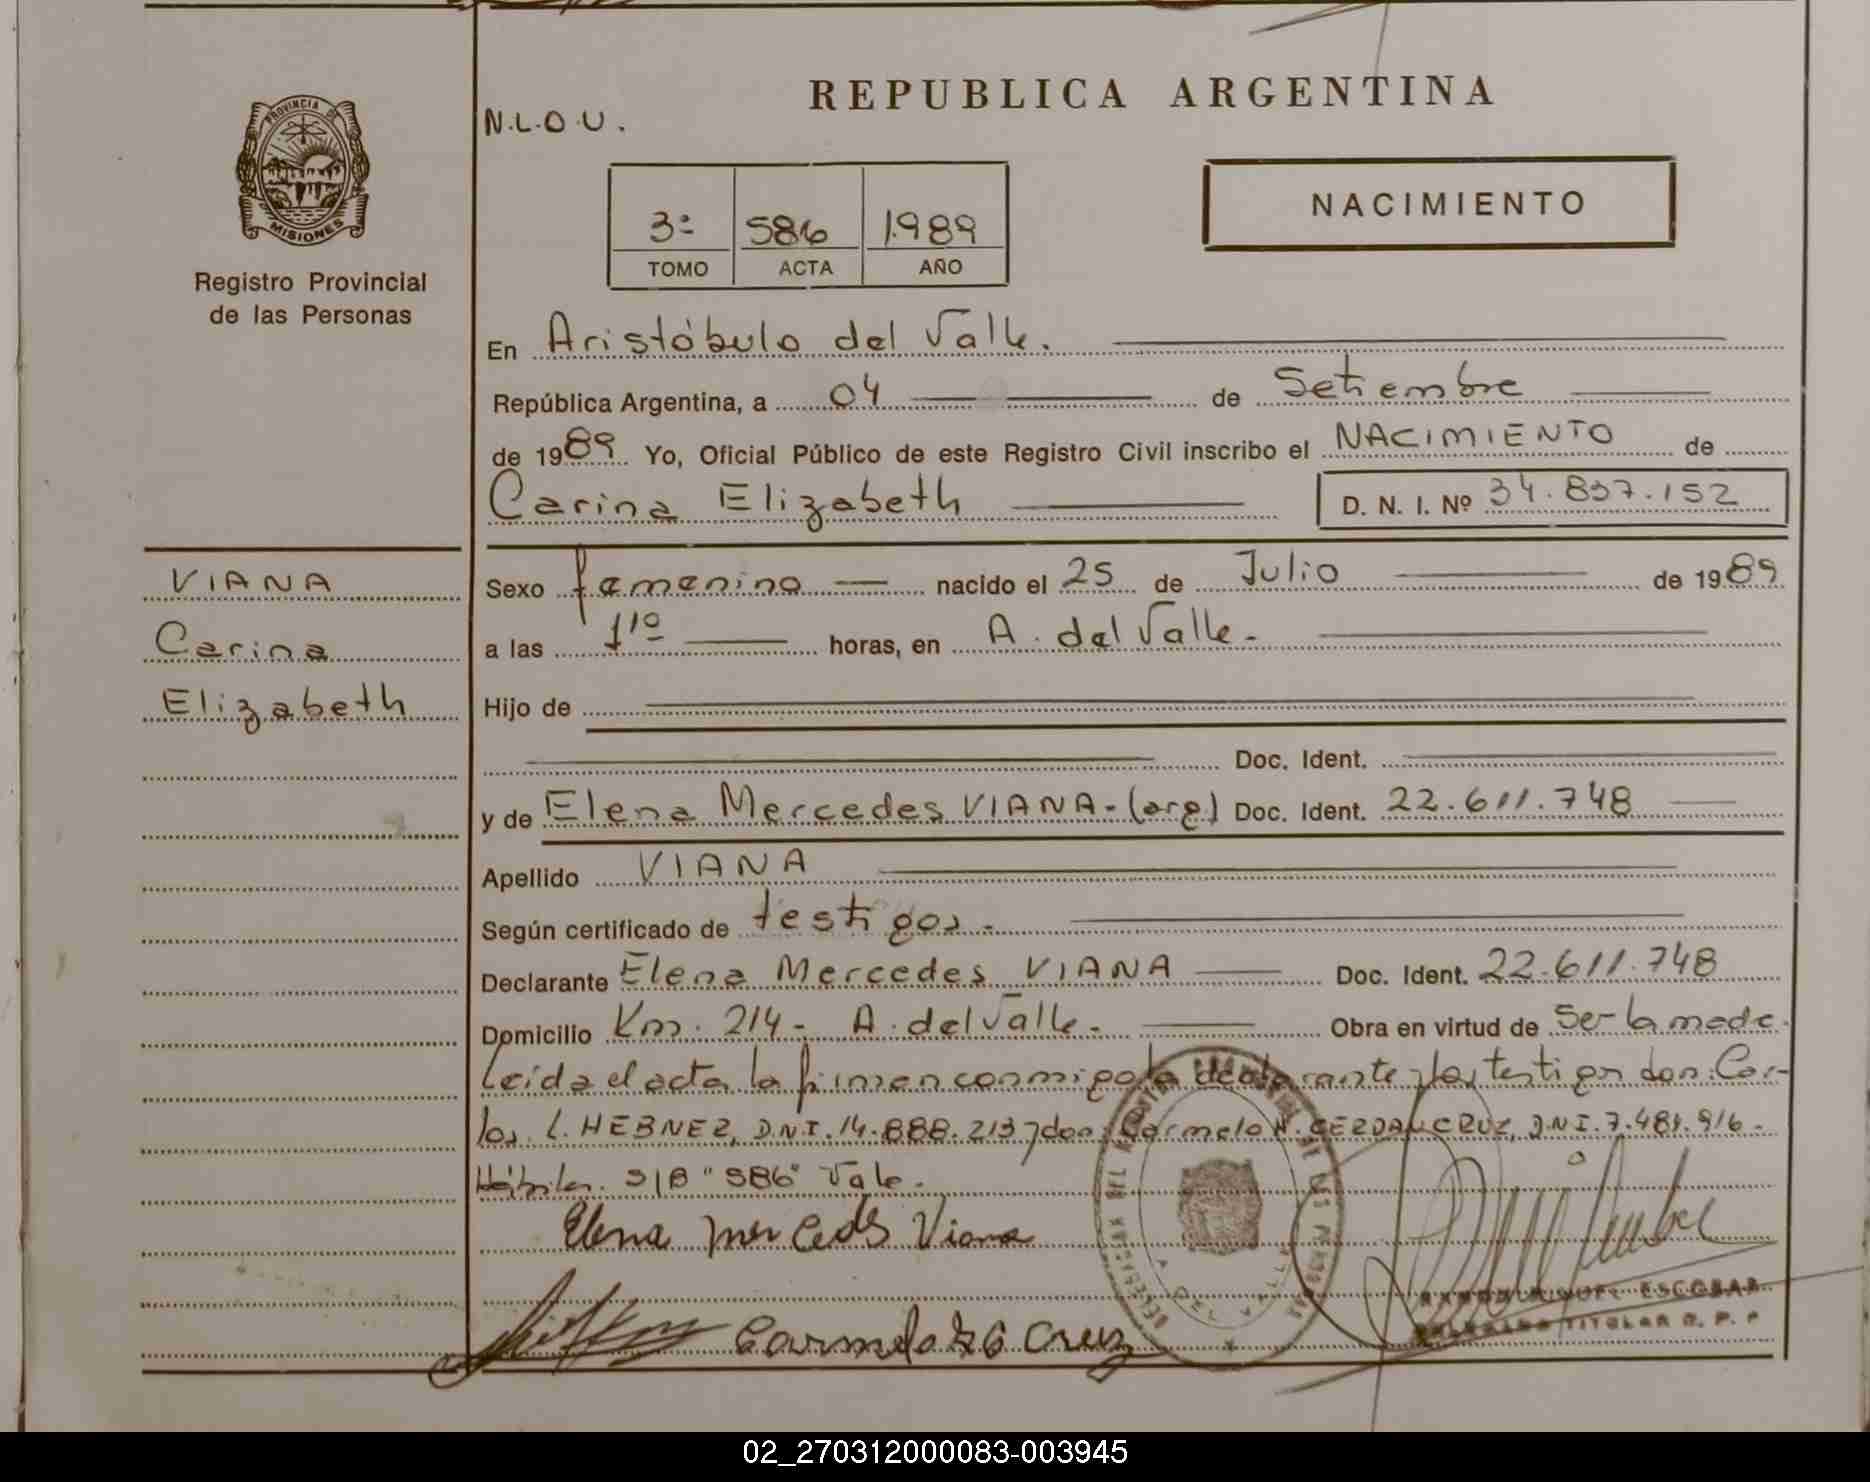 REPUBLICA ARGENTINA
N.L.O.U.
PROVINCIA DE
MISIONES
Registro Provincial
de las Personas
NACIMIENTO
3º 586 1989
TOMO ACTA AÑO
En Aristóbulo del Valle.
República Argentina, a 04 de Setiembre
de 1989 Yo, Oficial Público de este Registro Civil inscribo el NACIMIENTO de
Carina Elizabeth D. N. I. Nº 34.837.152
VIANA
Carina
Elizabeth
Sexo femenino nacido el 25 de Julio de 1989
a las 11º horas, en A. del Valle.-
Hijo de
Doc. Ident.
y de Elena Mercedes VIANA-(arg) Doc. Ident. 22.611.748
Apellido VIANA
Según certificado de testigos.-
Declarante Elena Mercedes VIANA Doc. Ident. 22.611.748
Domicilio Km. 214- A. del Valle.- Obra en virtud de Ser la madre.
Leída el acta la firman conmigo la declarante y los testigos don: Car-
los. L. HEBNER, D.N.I. 14.888.213 y don: Carmelo CERDA CRUZ, D.N.I. 7.481.916-
Hábiles. S/B "586" Vale.
Elena mercedes Viana
Carmelo Cruz
ESCOBAR
TITULAR R. P. P
02_270312000083-003945